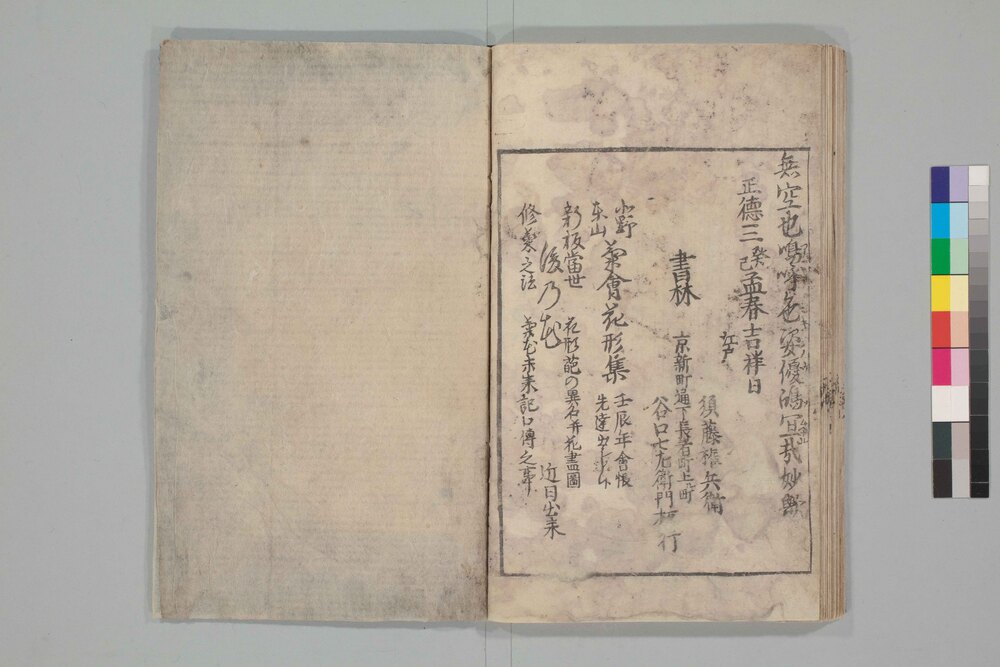 無空也鳴呼色姿優鴻宣哉妙歟
正徳三癸巳孟春吉祥日
江戸 須藤権兵衛
書林
京新町通下長者町上ル町
谷口七左衛門板行
小野
東山
菊會花形集
壬辰年會帳
先達而出シ申候
新板當世
後乃花
花形葩の異名并花畫圖
近日出来
修葉之法
菊花未来記口傳之事